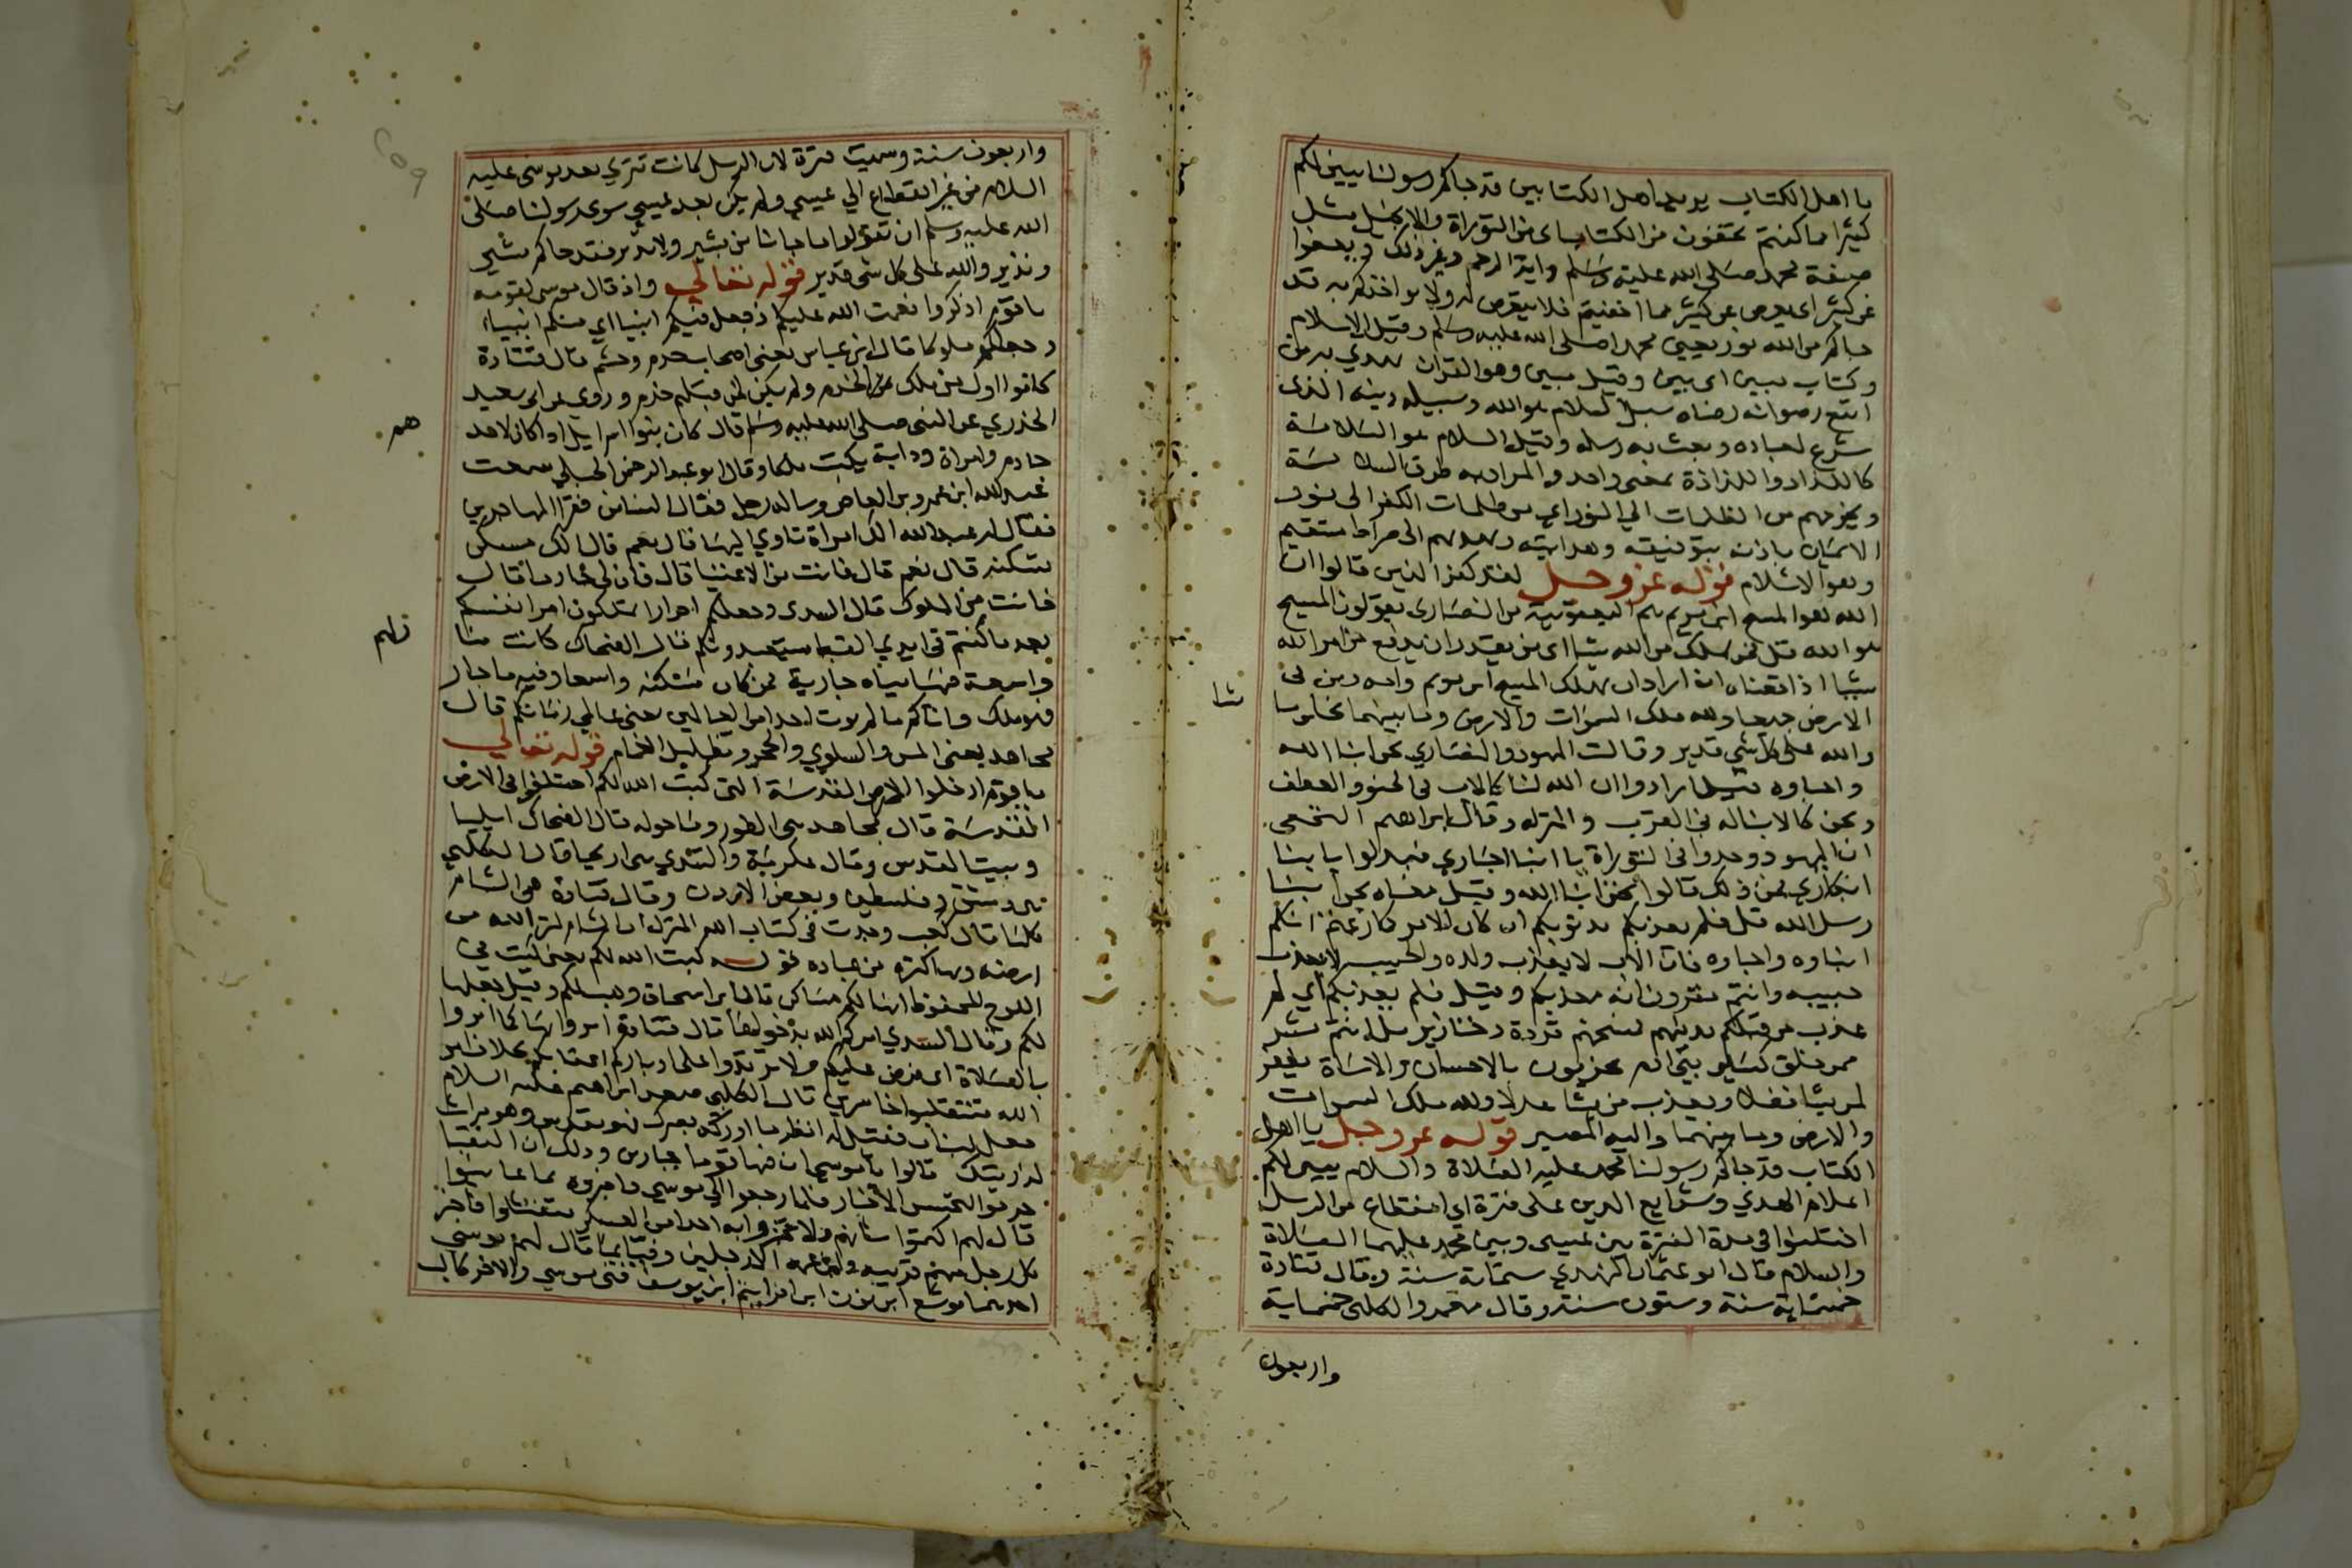 يا اهل الكتاب يريد يا اهل الكتابين قد جاكم رسولنا يبين لكم
كثيرا مما كنتم تخفون من الكتاب اى من التوراة والانجيل مثل
صفة محمد صلى الله عليه وسلم واية الرجم وغير ذلك ويعفوا
عن كثير اى يعرض عن كثير مما اخفيتم فلا يتعرض له ولا يواخذكم به قد
جاكم من الله نور يعني محمدا صلى الله عليه وسلم وقيل الاسلام
وكتاب مبين اى بين وقيل مبين وهو القران يهدي به من
اتبع رضوانه رضاه سبل السلام هو الله وسبيله دينه الذى
شرع لعباده وبعث به رسله وقيل السلام هو السلامة
كاللذاذ واللذاذة بمعنى واحد والمراد به طرق السلامة
ويخرجهم من الظلمات الي النور اي من ظلمات الكفر الى نور
الايمان باذنه بتوفيقه وهدايته ويهديهم الى صراط مستقيم
وهو الاسلام قوله عز وجل لقد كفر الذين قالوا ان
الله هو المسيح ابن مريم هم اليعقوبية من النصارى يقولون المسيح
هو الله قل فمن يملك من الله شيا اى من يقدر ان يدفع من امر الله
شيا اذا قضاه ان اراد ان يهلك المسيح ابن مريم وامه ومن فى
الارض جميعا ولله ملك السموات والارض وما بينهما يخلق ما
شا
والله على كل شي قدير وقالت اليهود والنصاري نحن ابنا الله
واحباوه قيل ارادوا ان الله لنا كالاب فى الحنو والعطف
ونحن كالابنا له في القرب والمنزله وقال ابراهيم النخعى
ان اليهود وجدوا فى التوراة يا ابنا احباري فبدلوا يا ابنا
ابكاري فمن ذلك قالوا نحن ابنا الله وقيل معناه نحن ابنا
رسل الله قل فلم يعذبكم بذنوبكم ان كان الامر كما زعمتم انكم
ابناوه واحباوه فان الاب لا يعذب ولده والحبيب لا يعذب
حبيبه وانتم مقرون انه معذبكم وقيل فلم يعذبكم اي لم
عذب من قبلكم بذنبهم فمسخهم قردة وخنازير بل انتم بشر
ممن خلق كساير بنى ادم مجزيون بالاحسان والاساة يغفر
لمن يشا فضلا ويعذب من يشا عدلا ولله ملك السموات
والارض وما بينهما واليه المصير قوله عز وجل يا اهل
الكتاب قد جاكم رسولنا محمد عليه الصلاة والسلام يبين لكم
اعلام الهدي وشرايع الدين على فترة اي انقطاع من الرسل
اختلفوا فى مدة الفترة بين عيسى وبين محمد عليهما الصلاة
والسلام قال ابو عثمان النهدي ستماية سنة وقال قتادة
خمسماية سنة وستون سنة وقال معمر والكلبى خمسماية
واربعون
واربعون سنة وسميت فترة لان الرسل كانت تترى بعد موسى عليه
السلام من غير انقطاع الي عيسي ولم يكن بعد عيسي سوى رسولنا صلى
الله عليه وسلم ان تقولوا ما جانا من بشير ولا نذير فقد جاكم بشير
ونذير والله على كل شى قدير قوله تعالي واذ قال موسى لقومه
يا قوم اذكروا نعمت الله عليكم اذ جعل فيكم انبيا اي منكم انبياء
وجعلكم ملوكا قال ابن عباس يعنى اصحاب خدم وحشم قال قتادة
كانوا اول من ملك الخدم ولم يكن لمن قبلهم خدم وروى عن ابى سعيد
الخدري عن النبى صلى الله عليه وسلم قال كان بنوا اسرايل اذا كان لاحدهم
خادم وامراة ودابة يكتب ملكا وقال ابو عبد الرحمن الحبلي سمعت
عبد الله ابن عمرو بن العاص وساله رجل فقال السنا من فقرا المهاجرين
فقال له عبد الله الك امراة تاوي اليها قال نعم قال الك مسكن
تسكنه قال نعم قال فانت من الاغنيا قال فان لى خادما قال
فانت من الملوك قال السدى وجعلكم احرارا تملكون امر انفسكم
بعد ما كنتم فى ايدي القبط يستعبدونكم قال الضحاك كانت منازلهم
واسعة فيها مياه جارية فمن كان مسكنه واسعا وفيه ما جار
فهو ملك واتاكم ما لم يوت احدا من العالمين يعنى عالمي زمانكم قال
مجاهد يعنى المن والسلوي والحجر وتظليل الغمام قوله تعالي
يا قوم ادخلوا الارض المقدسة التى كتب الله لكم اختلفوا فى الارض
المقدسة قال مجاهد هى الطور وما حوله قال الضحاك ايليا
وبيت المقدس وقال عكرمة والسدي هى اريحا وقال الكلبي
هى دمشق وفلسطين وبعض الاردن وقال قتادة هى الشام
كلها قال كعب وجدت فى كتاب الله المنزل ان الشام كنز الله من
ارضه وبها كنزه من عباده قوله كتب الله لكم يعنى كتب في
اللوح المحفوظ انها لكم مساكن قال ابن اسحاق وهب الله لكم وقيل جعلها
لكم وقال السدي امركم الله بدخولها قال قتادة امروا بها كما امروا
بالصلاة اى فرض عليكم ولا ترتدوا على ادباركم اعقابكم بخلاف امر
الله فتنقلبوا خاسرين قال الكلبى صعد ابراهيم عليه السلام
جبل لبنان فقيل له انظر فما ادركه بصرك فهو مقدس وهو ميراث
لذريتك قالوا يا موسى ان فيها قوما جبارين وذلك ان النقبا
خرجوا لتجسس الاخبار فلما رجعوا الى موسي واخبروه بما عاينوا
قال لهم اكتموا شانهم ولا تخبروا به احدا من العسكر فتفشلوا فاخبر
كل رجل منهم قريبه وابن عمه الا رجلين وفيا بما قال لهم موسى
احدهما يوشع ابن نون ابن افراييم ابن يوسف فتى موسي والاخر كالب